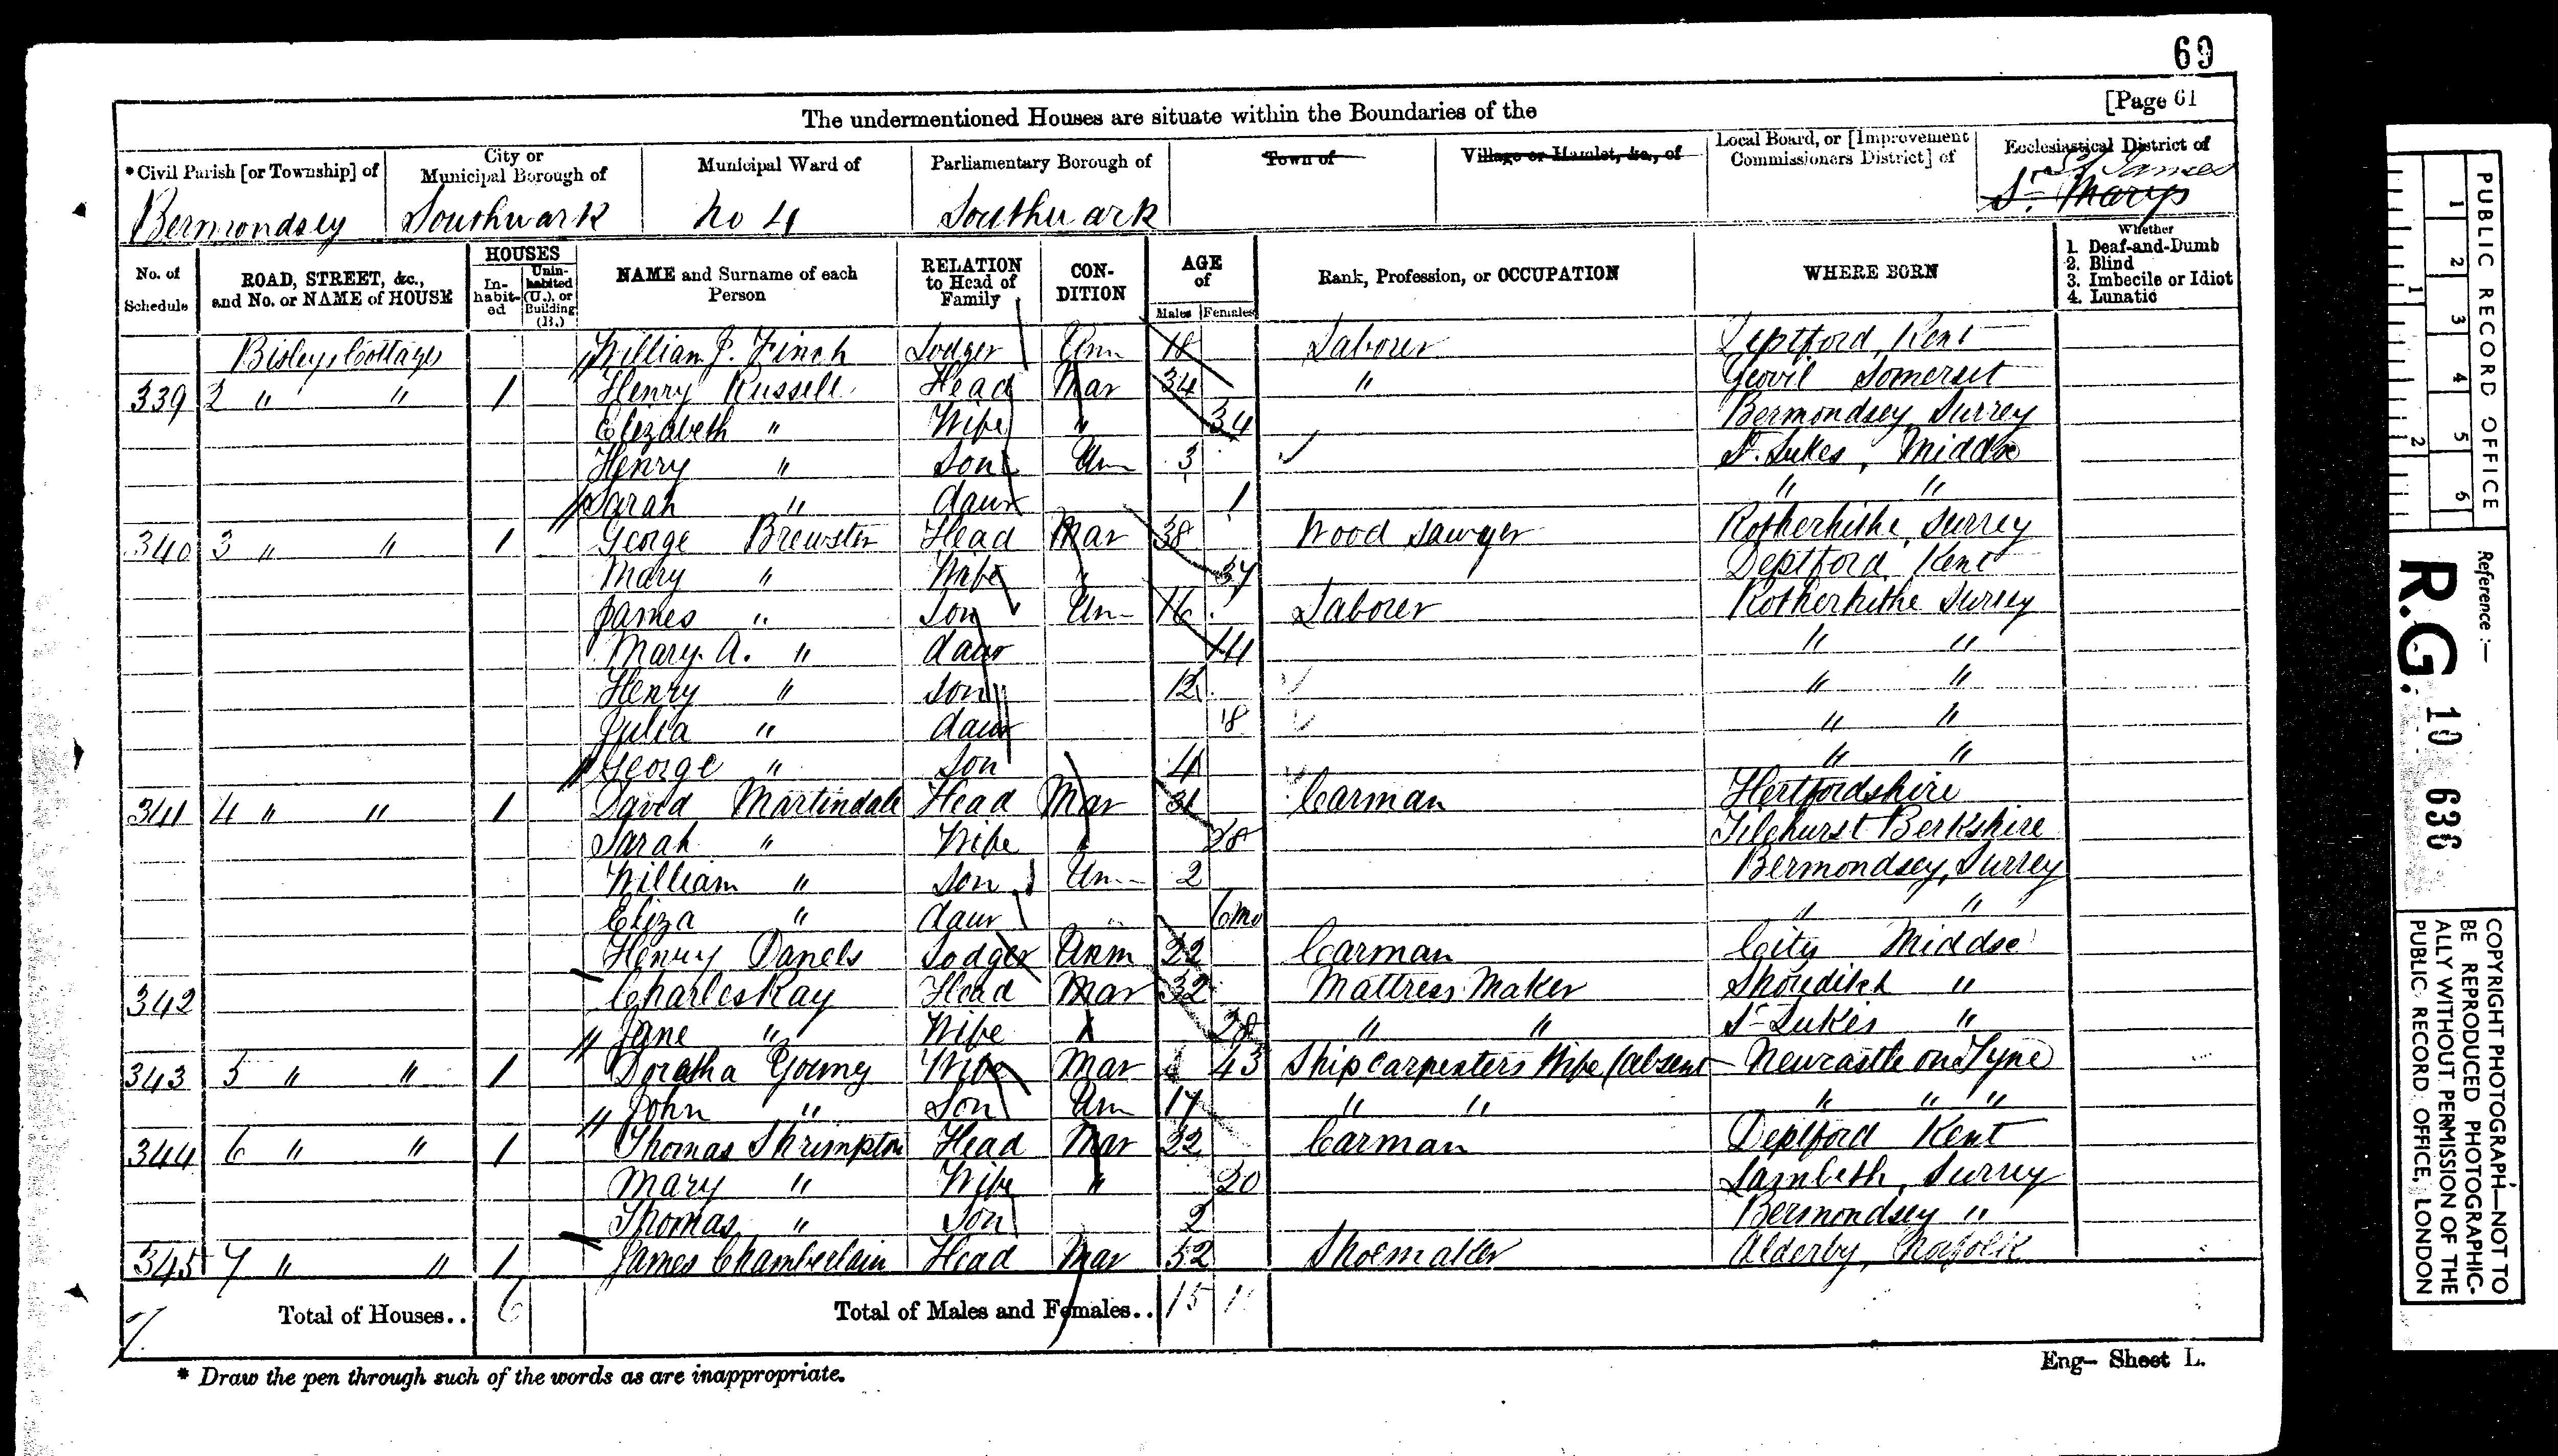 69
The undermentioned Houses are situate within the Boundaries of the [Page 61
*Civil Parish [or Township] of City or Municipal Borough of Municipal Ward of Parliamentary Borough of Town of Village or Hamlet, &c., of Local Board, or [Improvement Commissioners District] of Ecclesiastical District of
St James
Bermondsey Southwark No 4 Southwark St. Marys
No. of Schedule ROAD, STREET, &c., and No. or NAME of HOUSE HOUSES Inhabited Uninhabited (U.), or Building (B.) NAME and Surname of each Person RELATION to Head of Family CONDITION AGE of Males Females Rank, Profession, or OCCUPATION WHERE BORN Whether 1. Deaf-and-Dumb 2. Blind 3. Imbecile or Idiot 4. Lunatic
Bisleys Cottages William J. Finch Lodger Unm 18 Laborer Deptford, Kent
339 2 " " 1 Henry Russell Head Mar 34 " Yeovil Somerset
Elizabeth " Wife " 34 Bermondsey Surrey
Henry " Son Un 3 St. Lukes, Middx
Sarah " daur 1 " "
340 3 " " 1 George Brewster Head Mar 38 Wood Sawyer Rotherhithe, Surrey
Mary " Wife " 37 Deptford, Kent
James " Son Un 16 Laborer Rotherhithe Surrey
Mary A. " daur 14 " "
Henry " Son 12 " "
Julia " daur 8 " "
George " Son 4 " "
341 4 " " 1 David Martindale Head Mar 31 Carman Hertfordshire
Sarah " Wife " 28 Tilehurst Berkshire
William " Son Un 2 Bermondsey, Surrey
Eliza " daur 6mo " "
Henry Danels Lodger Unm 22 Carman City Middse
342 Charles Kay Head Mar 32 Mattress Maker Shoreditch "
Jane " Wife 28 " " St Lukes "
343 5 " " 1 Doratha Young Wife Mar 43 Ship carpenters Wife (absent Newcastle on Tyne
John " Son Un 17 " " " " "
344 6 " " 1 Thomas Shrimpton Head Mar 22 Carman Deptford Kent
Mary " Wife " 20 Lambeth, Surrey
Thomas " Son 2 Bermondsey "
345 7 " " 1 James Chamberlain Head Mar 52 Shoemaker Alderby, Norfolk
Total of Houses.. 6 Total of Males and Females.. 15
* Draw the pen through such of the words as are inappropriate.
Eng— Sheet L.
PUBLIC RECORD OFFICE
1 2 3 4 5 6
1 2
Reference:—
R.G. 10 636
COPYRIGHT PHOTOGRAPH—NOT TO
BE REPRODUCED PHOTOGRAPHIC-
ALLY WITHOUT PERMISSION OF THE
PUBLIC RECORD OFFICE, LONDON